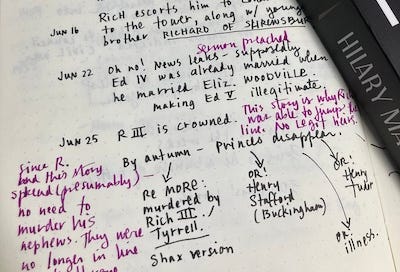 Rich escorts him to
to the tower, along w/ young
JUN 16
brother RICHARD OF SHREWSBUR
Sermon preached
JUN 22 Oh no! News leaks - supposedly
Ed IV was already married when
he married Eliz. WOODVILLE
making Ed V illegitimate.
This story is why Rich
was able to jump to
line. No legit heirs.
JUN 25 R III is crowned.
By autumn - Princes disappear.
Since R.
had this story
spread (presumably)
no need to
murder his
nephews. They were
no longer in line
Re MORE:
murdered by
Rich III
Tyrrell.
Shax version
OR!
Henry
Stafford
(Buckingham)
OR!
Henry
Tudor
OR
illness.
HILARY MA